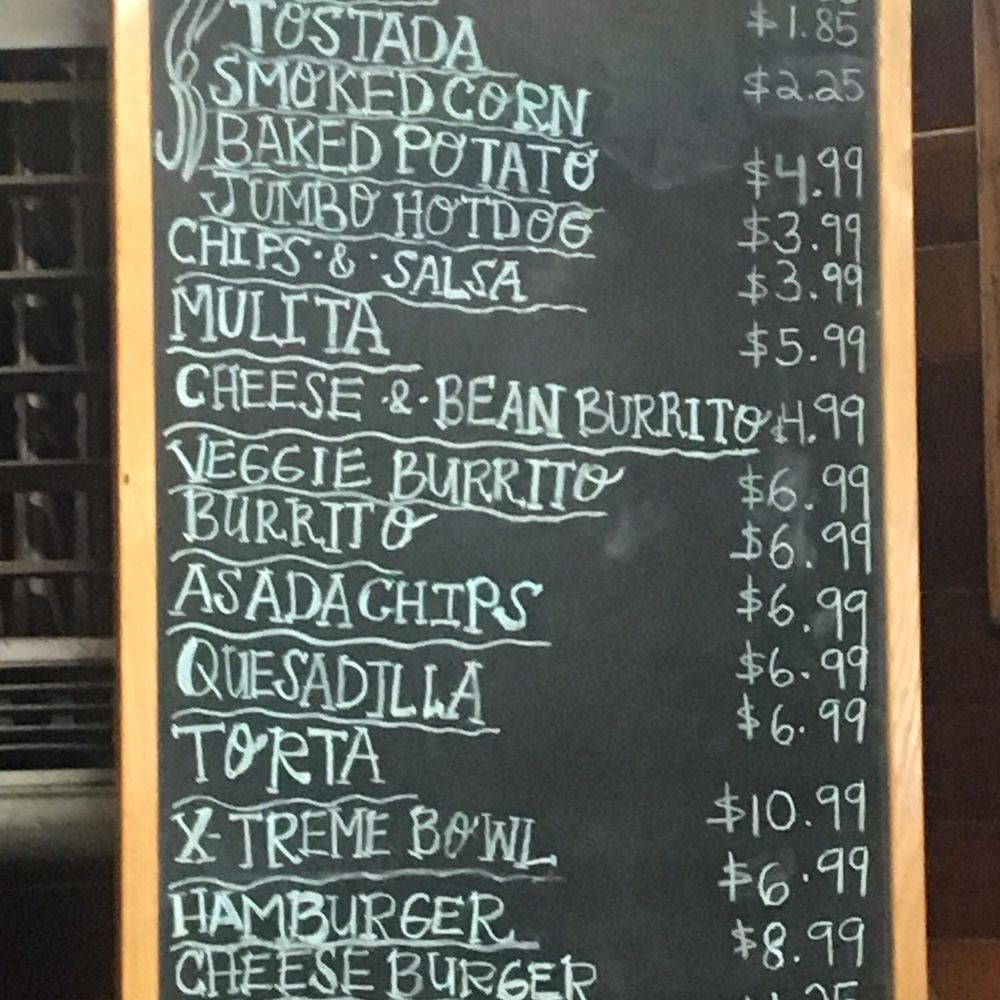 TOSTADA $1.85
SMOKED CORN $2.25
BAKED POTATO $4.99
JUMBO HOTDOG $3.99
CHIPS · & · SALSA $3.99
MULITA $5.99
CHEESE · & · BEAN BURRITO $4.99
VEGGIE BURRITO $6.99
BURRITO $6.99
ASADA CHIPS $6.99
QUESADILLA $6.99
TORTA $6.99
X-TREME BOWL $10.99
HAMBURGER $6.99
CHEESE BURGER $8.99